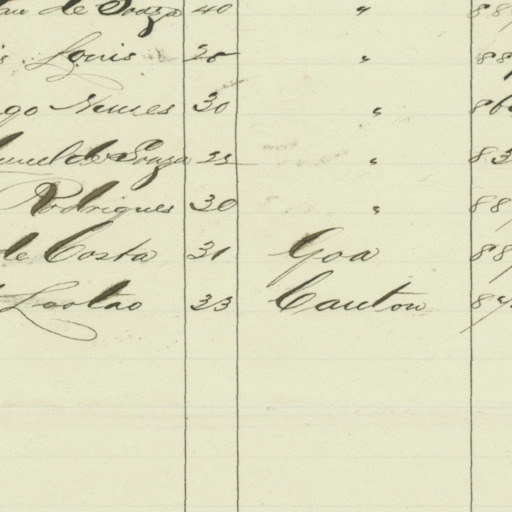 de Souza 40 " 88
Louis 25 " 88
go Nunes 30 " 86
de Souza 25 " 83
Rodrigues 30 " 88
de Costa 31 Goa 88
Leotao 33 Canton